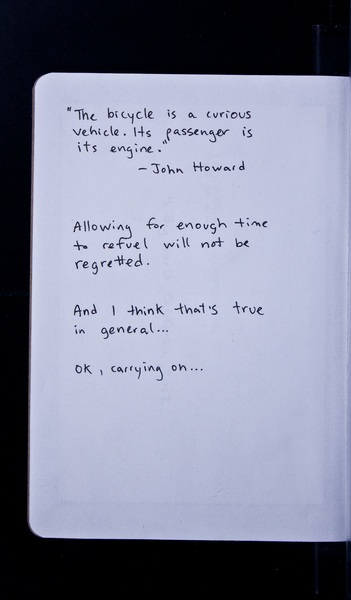 "The bicycle is a curious
vehicle. Its passenger is
its engine."
- John Howard
Allowing for enough time
to refuel will not be
regretted.
And I think that's true
in general...
OK, carrying on...